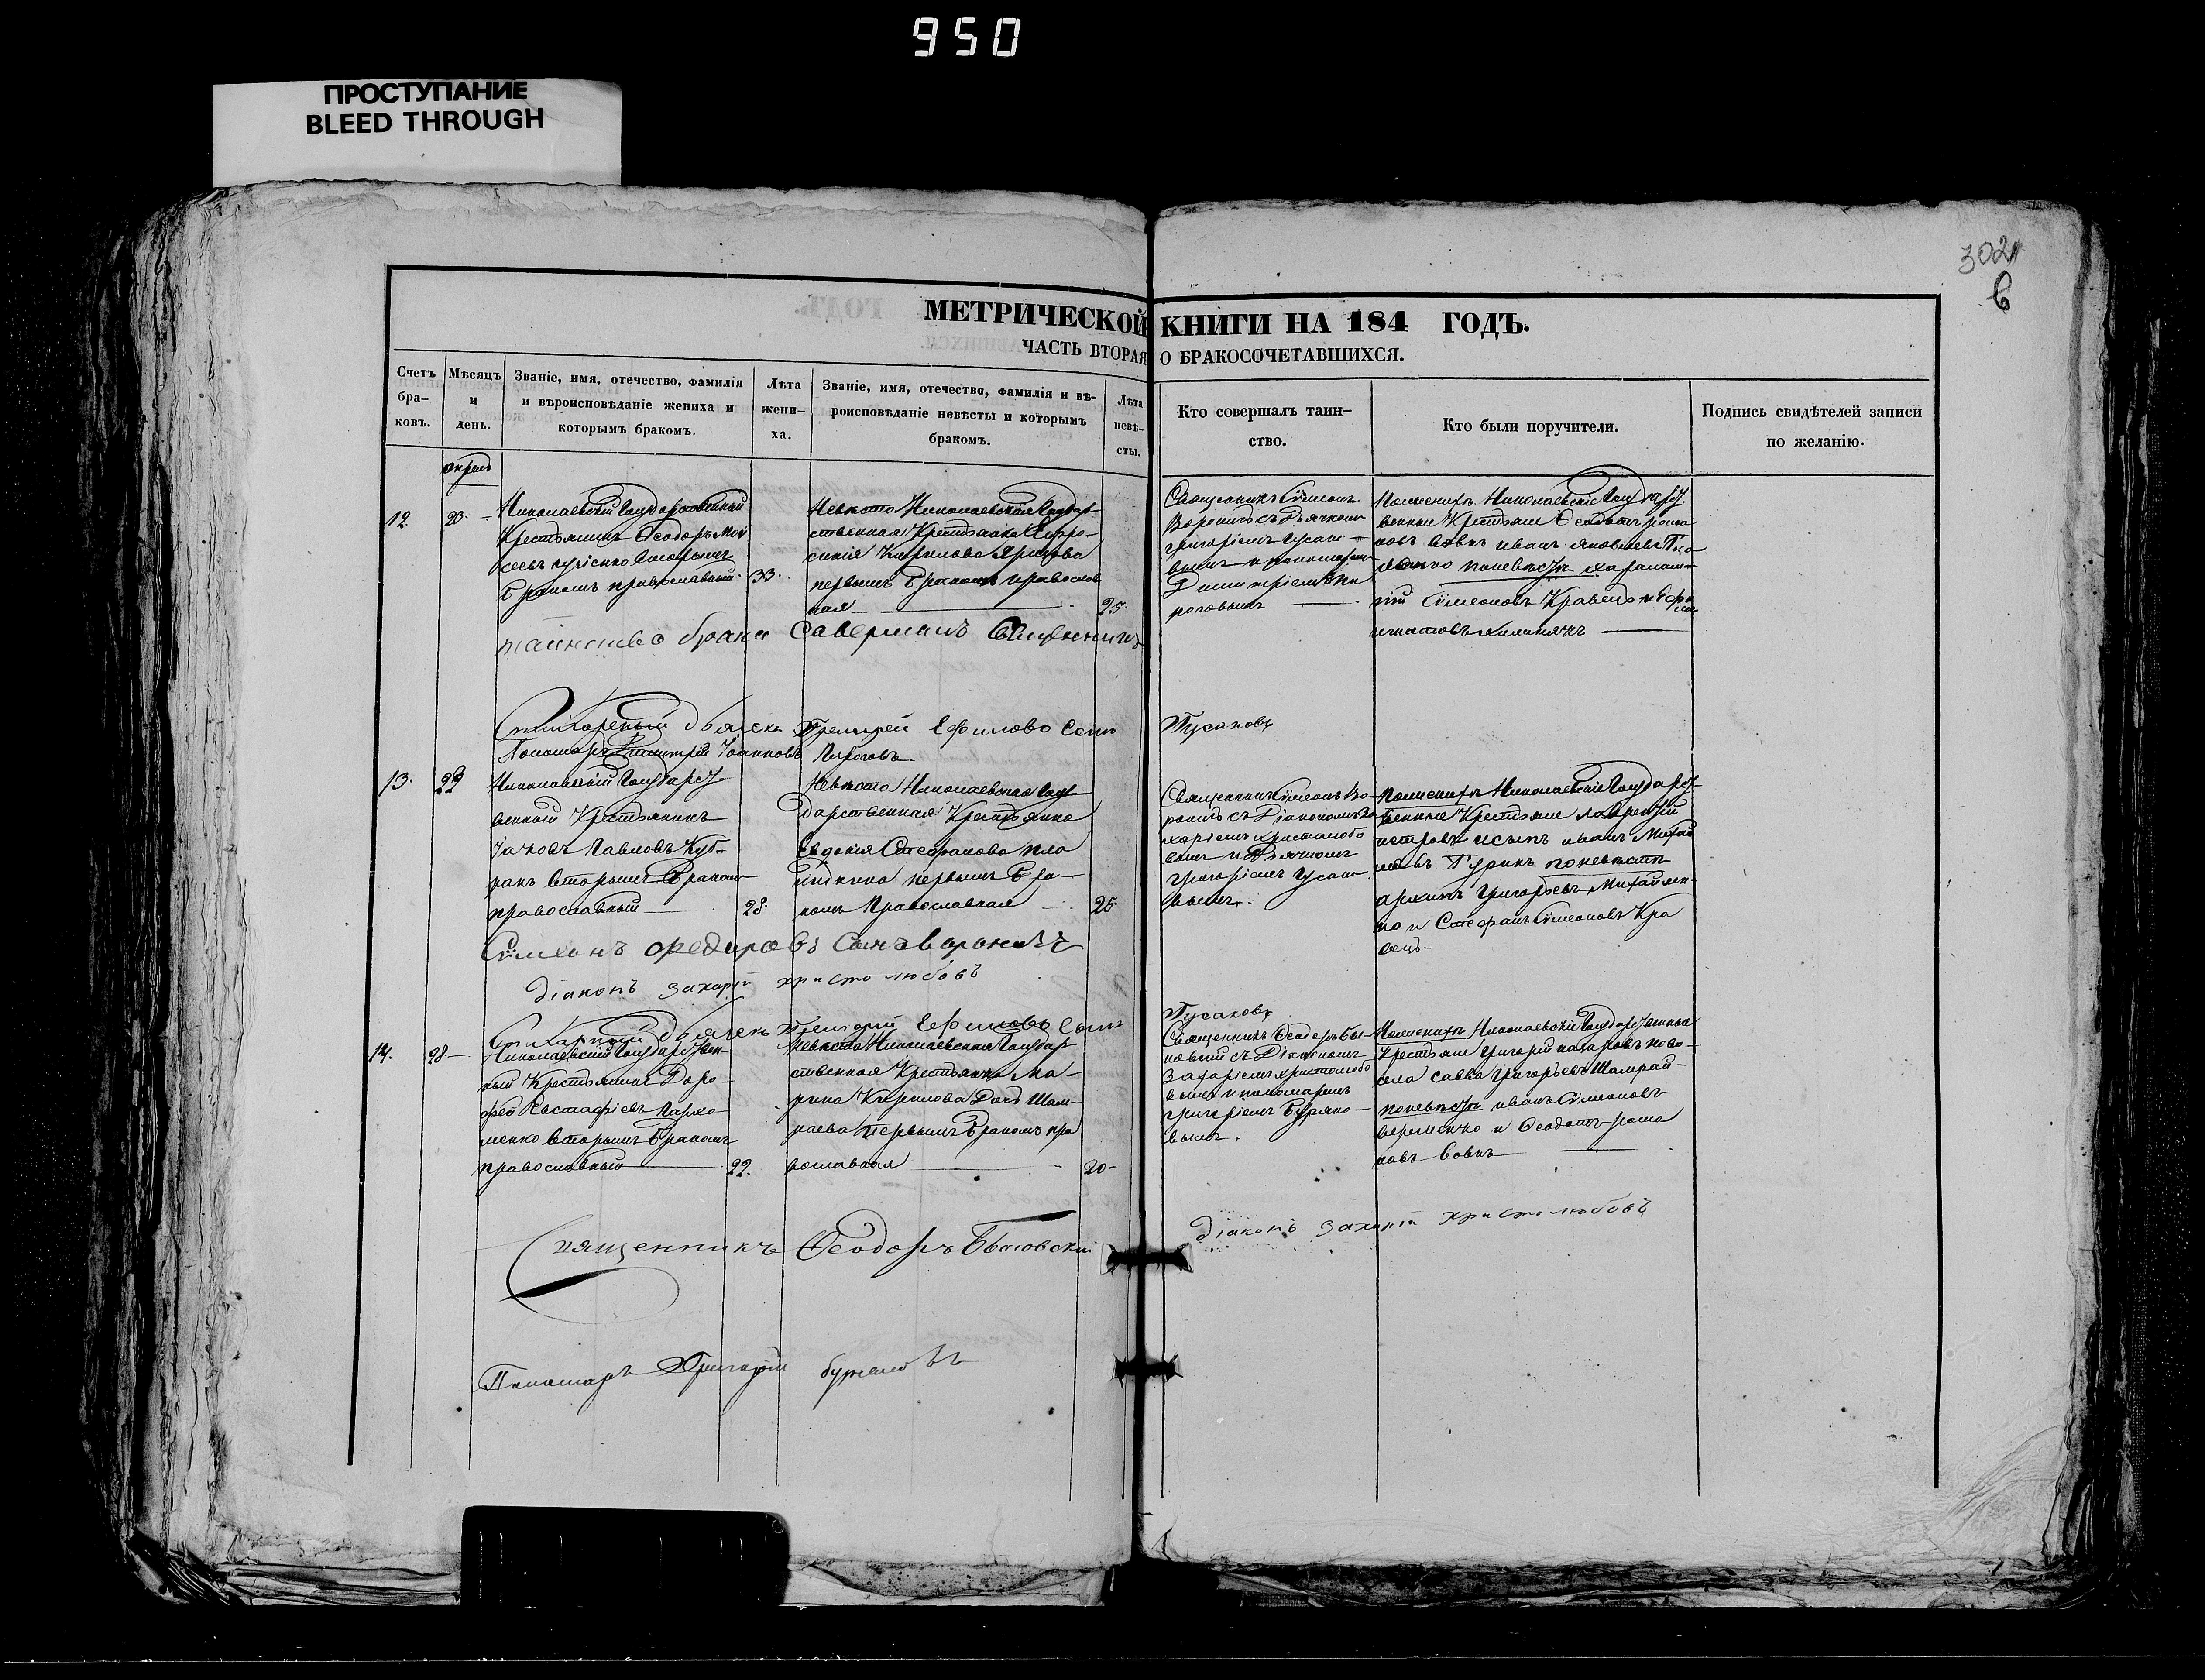 950
ПРОСТУПАНИЕ
BLEED THROUGH
302
6
МЕТРИЧЕСКОЙ КНИГИ НА 184 ГОДЪ.
ЧАСТЬ ВТОРАЯ О БРАКОСОЧЕТАВШИХСЯ.
Счетъ бра–ковъ.
Мѣсяцъ и день.
Званіе, имя, отечество, фамилія и вѣроисповѣданіе жениха и которымъ бракомъ.
Лѣта жени–ха.
Званіе, имя, отечество, фамилія и вѣ–роисповѣданіе невѣсты и которымъ бракомъ.
Лѣта невѣ–сты.
Кто совершалъ таин–ство.
Кто были поручители.
Подпись свидѣтелей записи по желанію.
апрель
12.
20.
Николаевский Государственный
Крестьянинъ Ѳеодоръ
вторымъ
Бракомъ православный
33.
Невѣста Николаевская Государ
ственная Крестьянка Евфро–
синія Кирилова
первымъ Бракомъ православ
ная
25.
Священникъ Сѵмеонъ
Вороничь съ Дьячкомъ
Григоріемъ Гусако–
вымъ и пономаремъ
Димитріемъ Пи
роговымъ
Поженихѣ Николаевскіе Государст
венные Крестьяне Ѳеодотъ рома
новъ Вовкъ иванъ Яковлевъ
поневѣстѣ харалам
пій Сѵмеоновъ Кравецъ и
игнатовъ
таинство брака Савершалъ Священникъ
Стихареный дьячекъ Григорей Ефимово Сынъ Гусаковъ
Пономарь Димитрій Иоанновъ Пироговъ
13.
23
Николаевский Государст
венный Крестьянинъ
Іаковъ Павловъ Куб–
ракъ вторымъ Бракомъ
православный
28.
Невѣста Николаевская Госу
дарственная Крестьянка
Евдокія Стефанова
первымъ Бра–
комъ Православная
25.
Священникъ Сѵмеонъ Во–
роничь съ Діакономъ За
харіемъ христолюбо
вымъ и Дьячкомъ
Григоріемъ Гусако
вымъ.
Поженихѣ Николаевскіе Государст–
венные Крестьяне лаврентій
петровъ исынъ иванъ Михай
ловъ Гуринъ поневѣстѣ
Григорьевъ Михайлен–
ко и Стефанъ Сѵмеоновъ Кра
вецъ–
Сѵмеонъ Федировъ Сынъ Вороничь
діаконъ захарій христолюбовъ
Стихарный дьячекъ Григорій Ефимовъ Сынъ Гусаковъ
14.
28–
Николаевский Государствен–
ный Крестьянинъ Доро–
фей Евстафіевъ Пархо–
менко вторымъ Бракомъ
православный
22.
Невѣста Николаевская Государ
ственная Крестьянка Ма–
рина Кирилова Дочь Шам–
раева первымъ Бракомъ пра
вославная
20–
Священникъ Ѳеодоръ Бы–
ковскій съ Діакономъ
Захаріемъ христолюбо
вымъ и пономаремъ
Григоріемъ
вымъ.
Поженихѣ Николаевскіе Государственные
Крестьяне Григорій назаровъ ново–
села савва Григорьевъ Шамрай–
поневѣстѣ иванъ Сѵмеоновъ
временко и Ѳеодотъ рома
новъ вовкъ
Священникъ Ѳеодоръ Быковскій
діаконъ захарій христолюбовъ
Пономарь Григорій